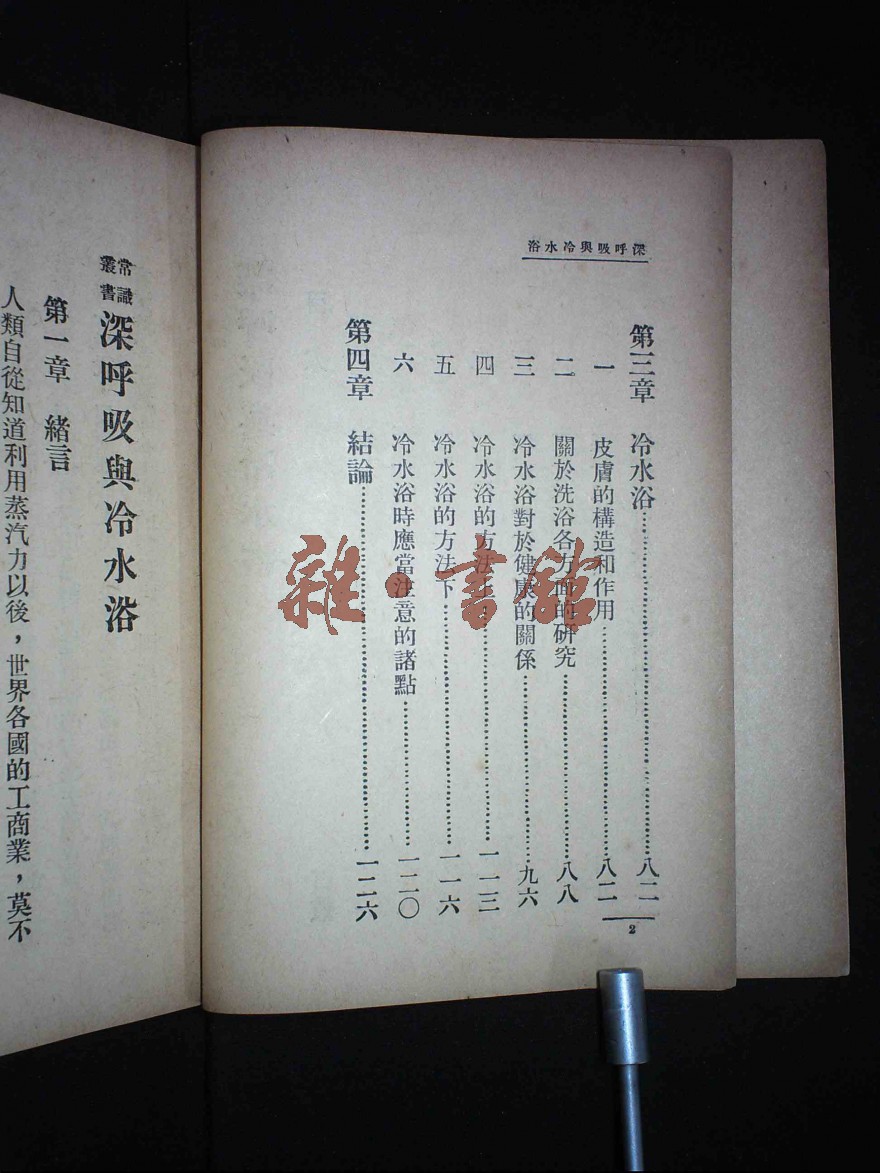 深呼吸與冷水浴
第三章 冷水浴……八二
一 皮膚的構造和作用……八二
二 關於洗浴各方面的研究……八八
三 冷水浴對於健康的關係……九六
四 冷水浴的方法上……一一三
五 冷水浴的方法下……一一六
六 冷水浴時應當注意的諸點……一二〇
第四章 結論……一二六
2
常識叢書 深呼吸與冷水浴
第一章 緒言
人類自從知道利用蒸汽力以後，世界各國的工商業，莫不
雜·書館